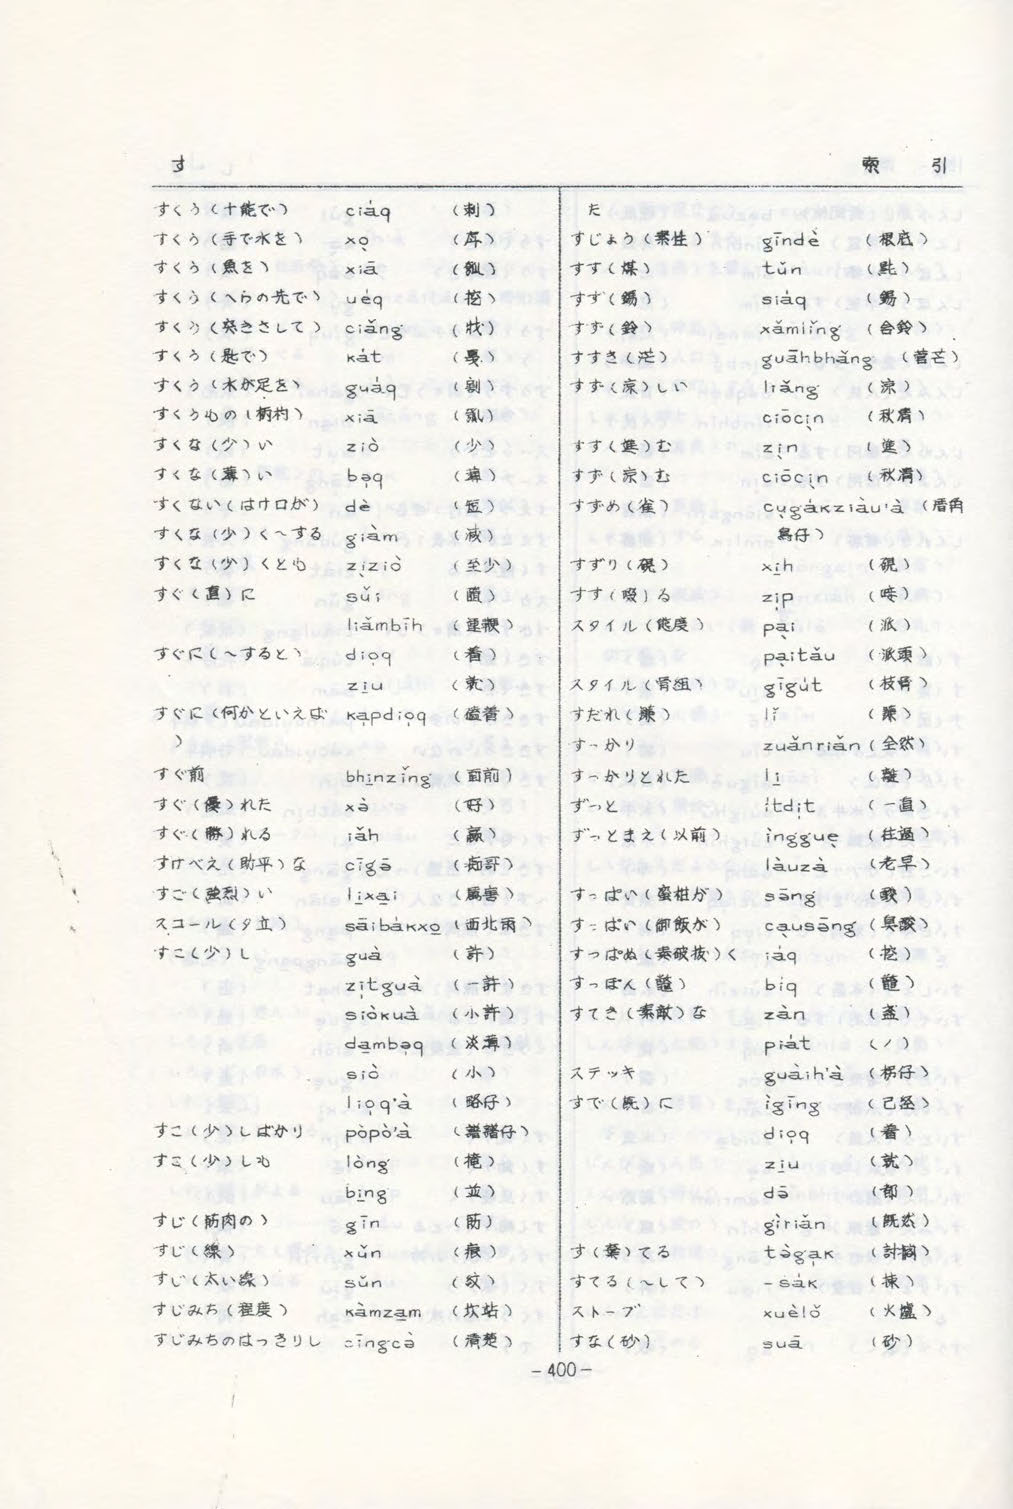 す
索 引
すくう(十能で) ciáq (刺)
すくう(手で水を) xo̤ (戽)
すくう(魚を) xiā
すくう(へらの先で) uéq (挖)
すくう ciăng
すくう(匙で) kát
すくう(水が足を) guáq
すくうもの(柄杓) xiā
すくな(少)い ziò (少)
すくな(薄)い bə̣q (薄)
すくない(はけ口が) dè (短)
すくな(少)く〜する giàm (减)
すくな(少)くとも ẓiziò (至少)
すぐ(直)に sŭi (随)
liămbīh (連鞭)
すぐに(〜すると) diọq (着)
ẓiu (就)
すぐに(何かといえば kạpdiọq
)
すぐ前 bhi̱nzĭng (面前)
すぐ(優)れた xà (好)
すぐ(勝)れる iăh (贏)
すけべえ(助平)な cīgə̄ (痴哥)
すご(強烈)い li̱xa̱i (厲害)
スコール(夕立) sāibàkxo̱ (西北雨)
すこ(少)し guà (許)
zịtguà (一許)
siòkuà (小許)
da̱mbə̣q (淡薄)
siò (小)
liọq'à (略仔)
すこ(少)しばかり pòpò'à
すこ(少)しも lòng
bi̱ng (並)
すじ(筋肉の) gīn (筋)
すじ(線) xŭn (痕)
すじ(太い線) sŭn (纹)
すじみち(程度) kàmza̱m (坎站)
すじみちのはっきりし cīngcò (清楚)
た
すじょう(素性) gīndè (根底)
すす(煤) tŭn
すず(錫) siáq (錫)
すず(鈴) xămlĭng (含鈴)
すすき(茫) guāhbhăng (菅芒)
すず(涼)しい liăng (涼)
ciōcịn (秋凊)
すす(進)む zịn (進)
すず(涼)む ciōcịn (秋凊)
すずめ(雀) cụgákziàu'à (厝角
鳥仔)
すずり(硯) xi̱h (硯)
すす(啜)る zịp (唼)
スタイル(態度) pại (派)
pạitău (派頭)
スタイル(骨組) gīgút (枝骨)
すだれ(簾) lĭ (簾)
すっかり zuănriăn (全然)
すっかりとれた li̱ (離)
ずっと ítdịt (一直)
ずっとまえ(以前) ìnggụe (往過)
làuzà (老早)
すっぱい(蜜柑が) sə̄ng (酸)
すっぱい(御飯が) cạusə̄ng (臭酸)
すっぱぬ(素破抜)く iáq (挖)
すっぽん(鼈) biq (鼈)
すてき(素敵)な zàn (盞)
piát (ノ)
ステッキ guàih'à (枴仔)
すで(既)に ìgīng (已经)
diọq (着)
ẓiu (就)
də̄ (都)
gìriăn (既然)
す(棄)てる tə̀gạk
すてる(〜して) -sák (揀)
ストーブ xuèlŏ (火爐)
すな(砂) suā (砂)
-400-